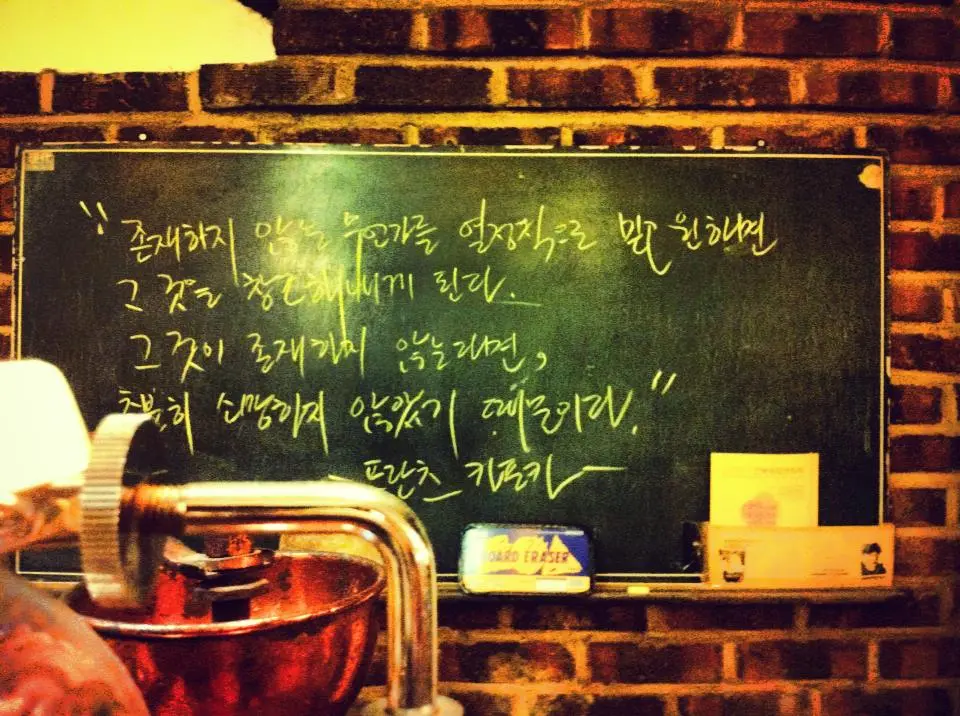 "존재하지 않는 무언가를 열정적으로 말고 원하면
그것을 창조해내게 된다.
그것이 존재하지 않는다면,
충분히 소망하지 않았기 때문이다."
- 프란츠 카프카 -
BOARD ERASER